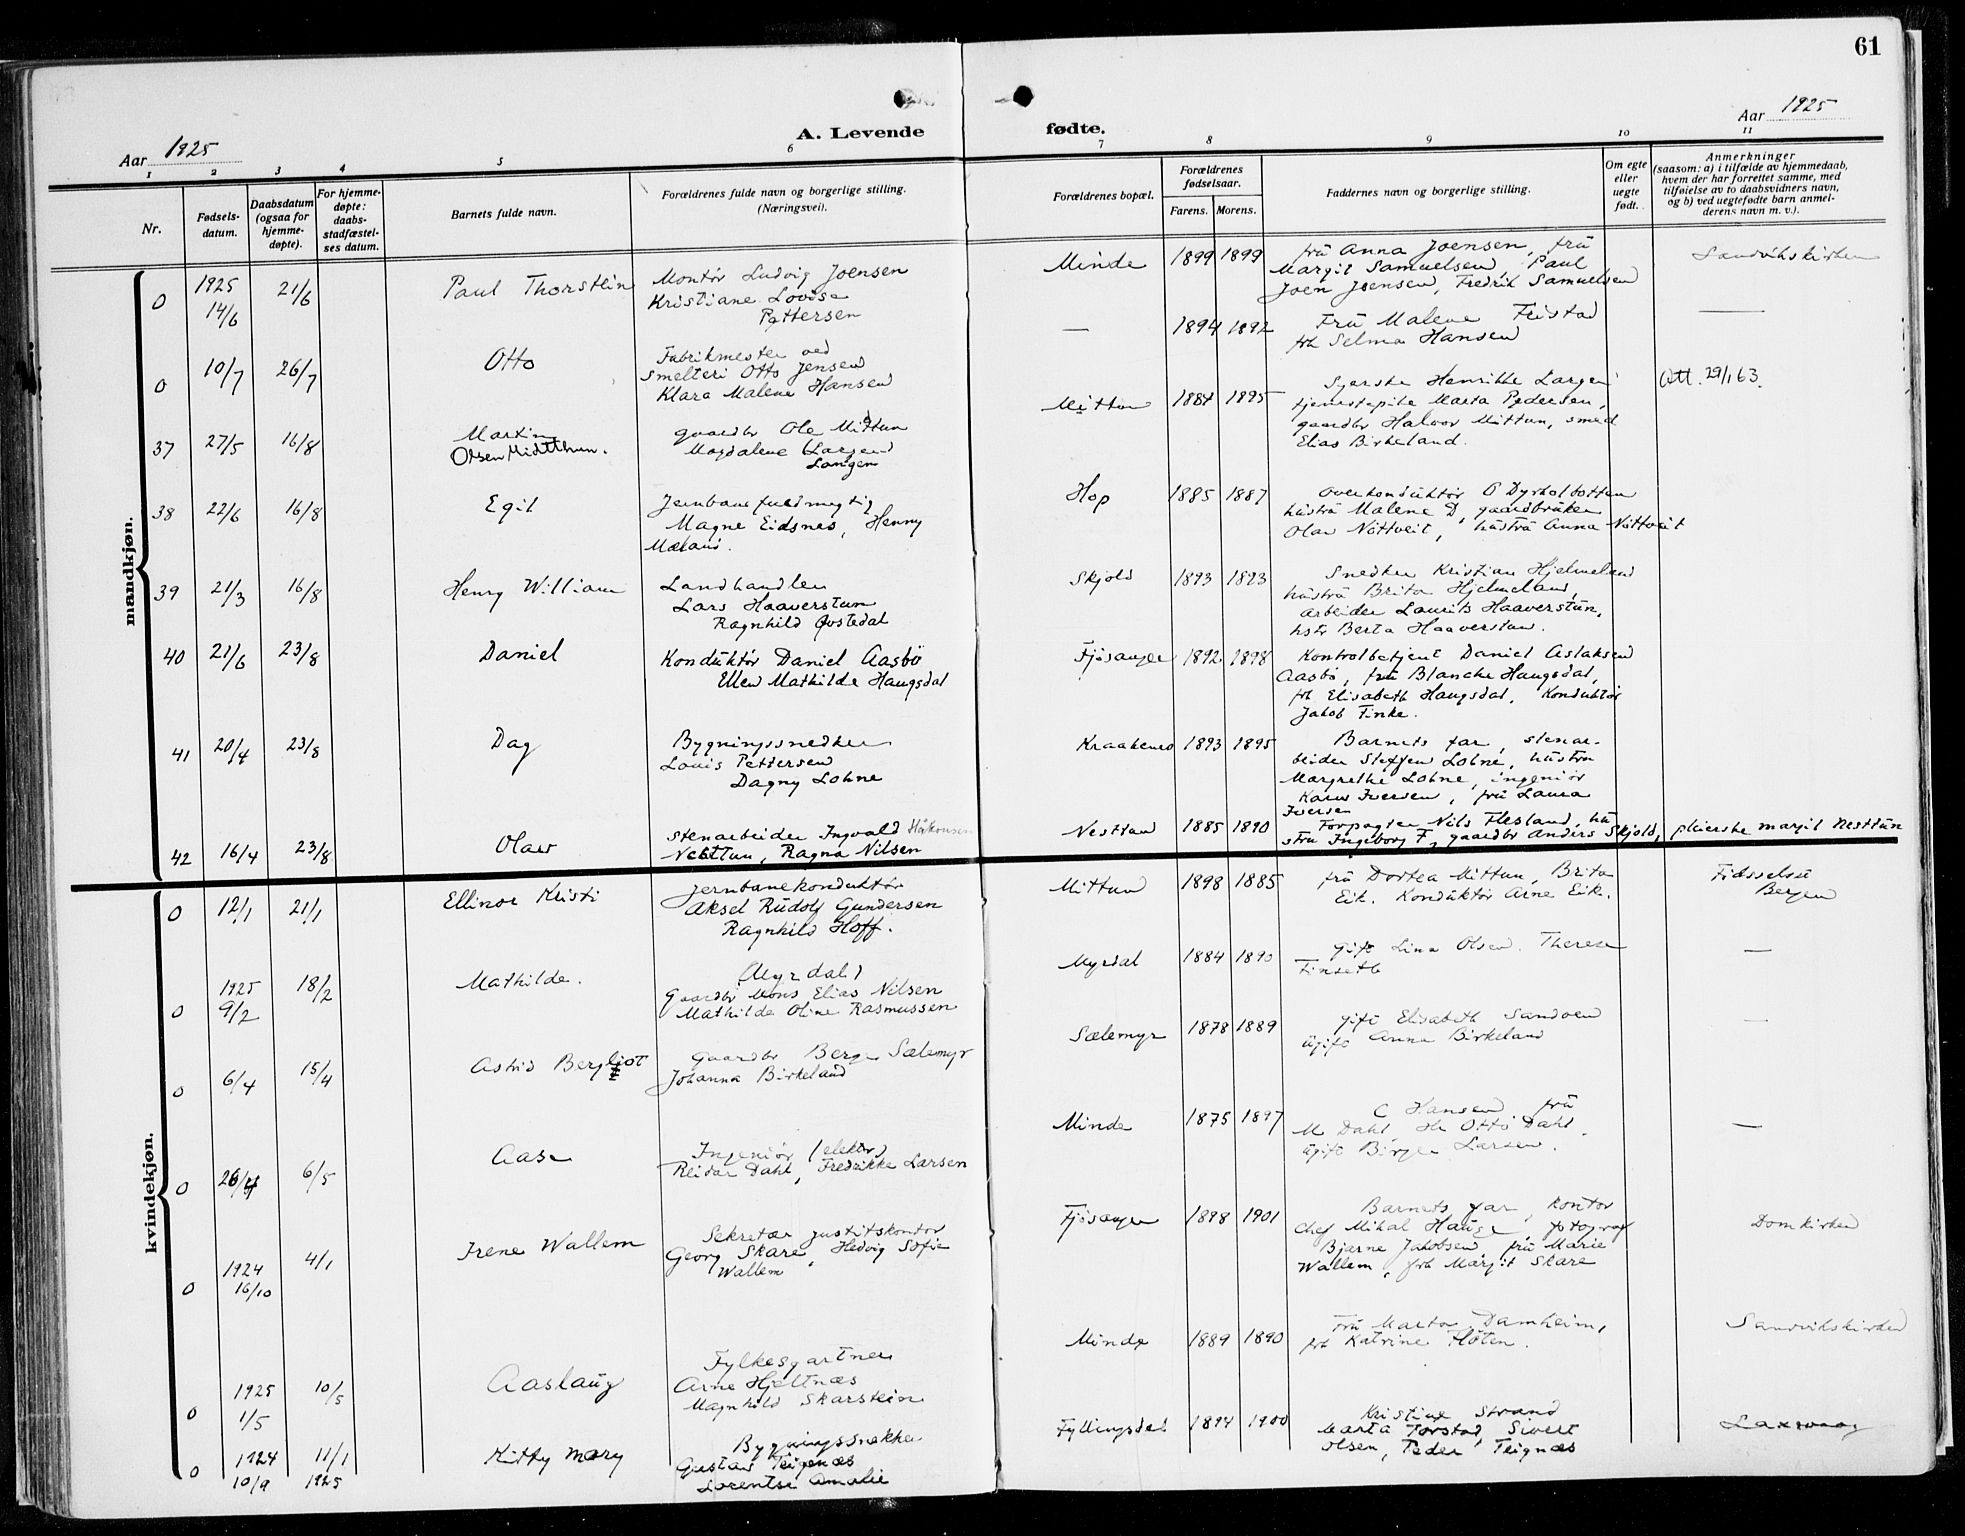 61
Aar 1925
A. Levende
fødte.
Aar 1925
1 2 3 4 5 6
7 8 9 10 11
Nr.
Fødsels-
datum.
Daabsdatum
(ogsaa for
hjemme-
døpte).
For hjemme-
døpte:
daabs-
stadfæstel-
ses datum.
Barnets fulde navn.
Forældrenes fulde navn og borgerlige stilling.
(Næringsvei).
Forældrenes bopæl.
Forældrenes
fødselsaar.
Farens. Morens.
Faddernes navn og borgerlige stilling.
Om egte
eller
uegte
født.
Anmerkninger
(saasom: a) i tilfælde av hjemmedaab,
hvem der har forrettet samme, med
tilføielse av to daabsvidners navn,
og b) ved uegtefødte barn anmel-
derens navn m. v.).
mandkjøn.
0 1925 14/6 21/6 Paul Thorstein
Montør Ludvig Joensen
Kristiane Lovise
Pettersen
Minde 1899 1899
frü Anna Joensen, frü
Margit Samuelsen, Paul
Joen Joensen, Fredrik Samuelsen
Sandvikskirken
0 10/7 26/7 Otto
Fabrikmester ved
smelteri Otto Jensen
Klara Malene Hansen
— 1894 1892
Frü Malene Feistad
frk Selma Hansen
—
37 27/5 16/8 Martin
Olsen Midtthun.
gaardbr Ole Mittun
Magdalene (Largen)
Langen
Mittun 1884 1895
Henrikke Largen
tjenestepike Marta Pedersen,
gaardbr Halvor Mittun, smed
Elias Birkeland.
Att. 29/1 63.
38 22/6 16/8 Egil
Jernbanefuldmegtig
Magne Eidsnes, Henny
Mæland.
Hop 1885 1887
Overkonduktør O Dyrkolbotten
hüstrü Malene D, gaardbrüker
Olav Nöttveit, hüstrü Anna Nöttveit
39 21/3 16/8 Henry William
Landhandler
Lars Haaverstun
Ragnhild Øvstedal
Skjold 1893 1893
Snedker Kristian Hjelmeland
hüstrü Brita Hjelmeland,
arbeider Laurits Haaverstün,
hstr Berta Haaverstun.
40 21/6 23/8 Daniel
Konduktør Daniel Aasbø
Ellen Mathilde Haugsdal
Fjøsanger 1892 1898
Kontrolbetjent Daniel Aslaksen
Aasbø, frü Blanche Haugsdal,
frk Elisabeth Haugsdal, Konduktør
Jakob Finke.
41 20/4 23/8 Dag
Bygningssnedker
Louis Pettersen
Dagny Lohne
Kraakenes 1893 1895
Barnets far, stenar-
beider Steffen Lohne, hüstrü
Margrethe Lohne, ingeniør
Iversen, frü Laura
Iversen
42 16/4 23/8 Olav
Stenarbeider Ingvald Håkonsen
Nesttun, Ragna Nilsen
Nesttun 1885 1890
Forpagter Nils Flesland, hü
strü Ingeborg F, gaardbr Anders Skjold, pleierske Margit Nesttün
kvindekjøn.
0 12/1 21/1 Ellinor Kristi
Jernbanekonduktør
Aksel Rüdolf Gundersen
Ragnhild Hoff.
Mittun 1898 1885
frü Dortea Mittun, Brita
Eik. Konduktør Arne Eik.
Fødselsst
Bergen
0 1925 9/2 18/2 Mathilde.
(Myrdal)
Gaardbr Mons Elias Nilsen
Mathilde Oline Rasmussen
Myrdal 1884 1890
gift Lina Olsen. Therese
Finseth
—
0 6/4 15/4 Astrid Bergliot
Gaardbr Berge Sælemyr
Johanna Birkeland
Sælemyr 1878 1889
gift Elisabeth Sandven
ügift Anna Birkeland
—
0 26/4 6/5 Aase
Ingeniør (elektr)
Reidar Dahl, Fredrikke Larsen
Minde 1875 1897
C Hansen, frü
M Dahl, Hr Otto Dahl.
ügift Birger Larsen.
—
0 1924 16/10 4/1 Irene Wallem
Sekretær justitskontor
Georg Skare, Hedvig Sofie
Wallem
Fjøsanger 1898 1901
Barnets far, kontor
chef Mikal Hauge, fotograf
Bjarne Jakobsen, frü Marie
Wallem, frk Margit Skare
Domkirken
0 1925 1/5 10/5 Aaslaug
Fylkesgartner
Arne Hjeltnæs
Magnhild Skarstein
Minde 1889 1890
Frü Marta Damheim,
frk Katrine Fløten.
Sandvikskirken
0 1924 10/9 11/1 1925 Kitty Mary
Bygningssnekker
Gustav Teigenæs
Lorentse Amalie
Fyllingsdal 1894 1900
Kristine Strand
Marta Torstad, Sivert
Olsen, Peder Teignæs
Laxevaag